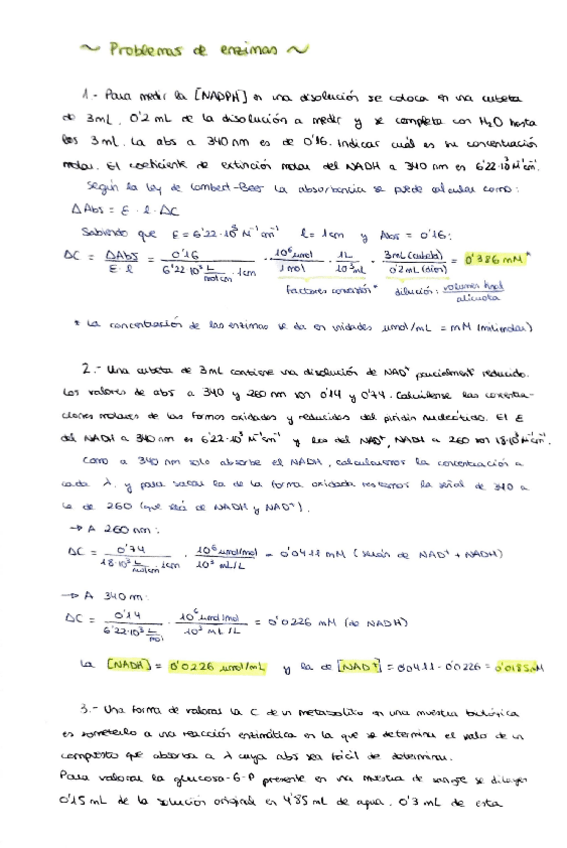 ~ Problemas de enzimas ~
1.- Para medir la [NADPH] en una disolución se coloca en una cubeta
de 3mL, 0'2 mL de la disolución a medir y se completa con H₂O hasta
los 3mL. La abs a 340nm es de 0'16. Indicar cuál es su concentración
molar. El coeficiente de extinción molar del NADH a 340nm es 6'22·10³M⁻¹cm⁻¹.
Según la ley de Lambert-Beer la absorbancia se puede calcular como:
ΔAbs = ε · l · ΔC
Sabiendo que ε = 6'22·10³ M⁻¹cm⁻¹ l = 1cm y Abs = 0'16:
ΔC = ΔAbs / ε · l = 0'16 / 6'22·10³ L/mol·cm · 1cm · 10⁶ μmol / 1 mol · 1L / 10³ mL · 3mL (cubeta) / 0'2mL (disn) = 0'386 mM*
factores conversión* dilución: volumen final / alicuota
* La concentración de las enzimas se da en unidades μmol/mL = mM (milimolar)
2.- Una cubeta de 3mL contiene una disolución de NAD⁺ parcialment reducido.
Los valores de abs a 340 y 260nm son 0'14 y 0'74. Calcúlense las concentra-
ciones molares de las formas oxidadas y reducidas del piridín nucleótido. El ε
del NADH a 340nm es 6'22·10³ M⁻¹cm⁻¹ y los del NAD⁺, NADH a 260 son 18·10³M⁻¹cm⁻¹.
Como a 340 nm solo absorbe el NADH, calculamos la concentración a
cada λ, y para sacar la de la forma oxidada restamos la señal de 340 a
la de 260 (que será de NADH y NAD⁺).
→ A 260 nm:
ΔC = 0'74 / 18·10³ L/mol·cm · 1cm · 10⁶ μmol/mol / 10³ mL/L = 0'0411 mM (serán de NAD⁺ + NADH)
→ A 340nm:
ΔC = 0'14 / 6'22·10³ L/mol · 10⁶ μmol/mol / 10³ mL/L = 0'0226 mM (de NADH)
La [NADH] = 0'0226 μmol/mL y la de [NAD⁺] = 0'0411 - 0'0226 = 0'0185mM
3.- Una forma de valorar la C de un metabolito en una muestra
es someterlo a una reacción enzimática en la que se determina el valor de un
compuesto que absorba a λ cuya abs sea fácil de determinar.
Para valorar la glucosa-6-P presente en una muestra de sangre se diluyen
0'15 mL de la solución original en 4'85 mL de agua. 0'3 mL de esta